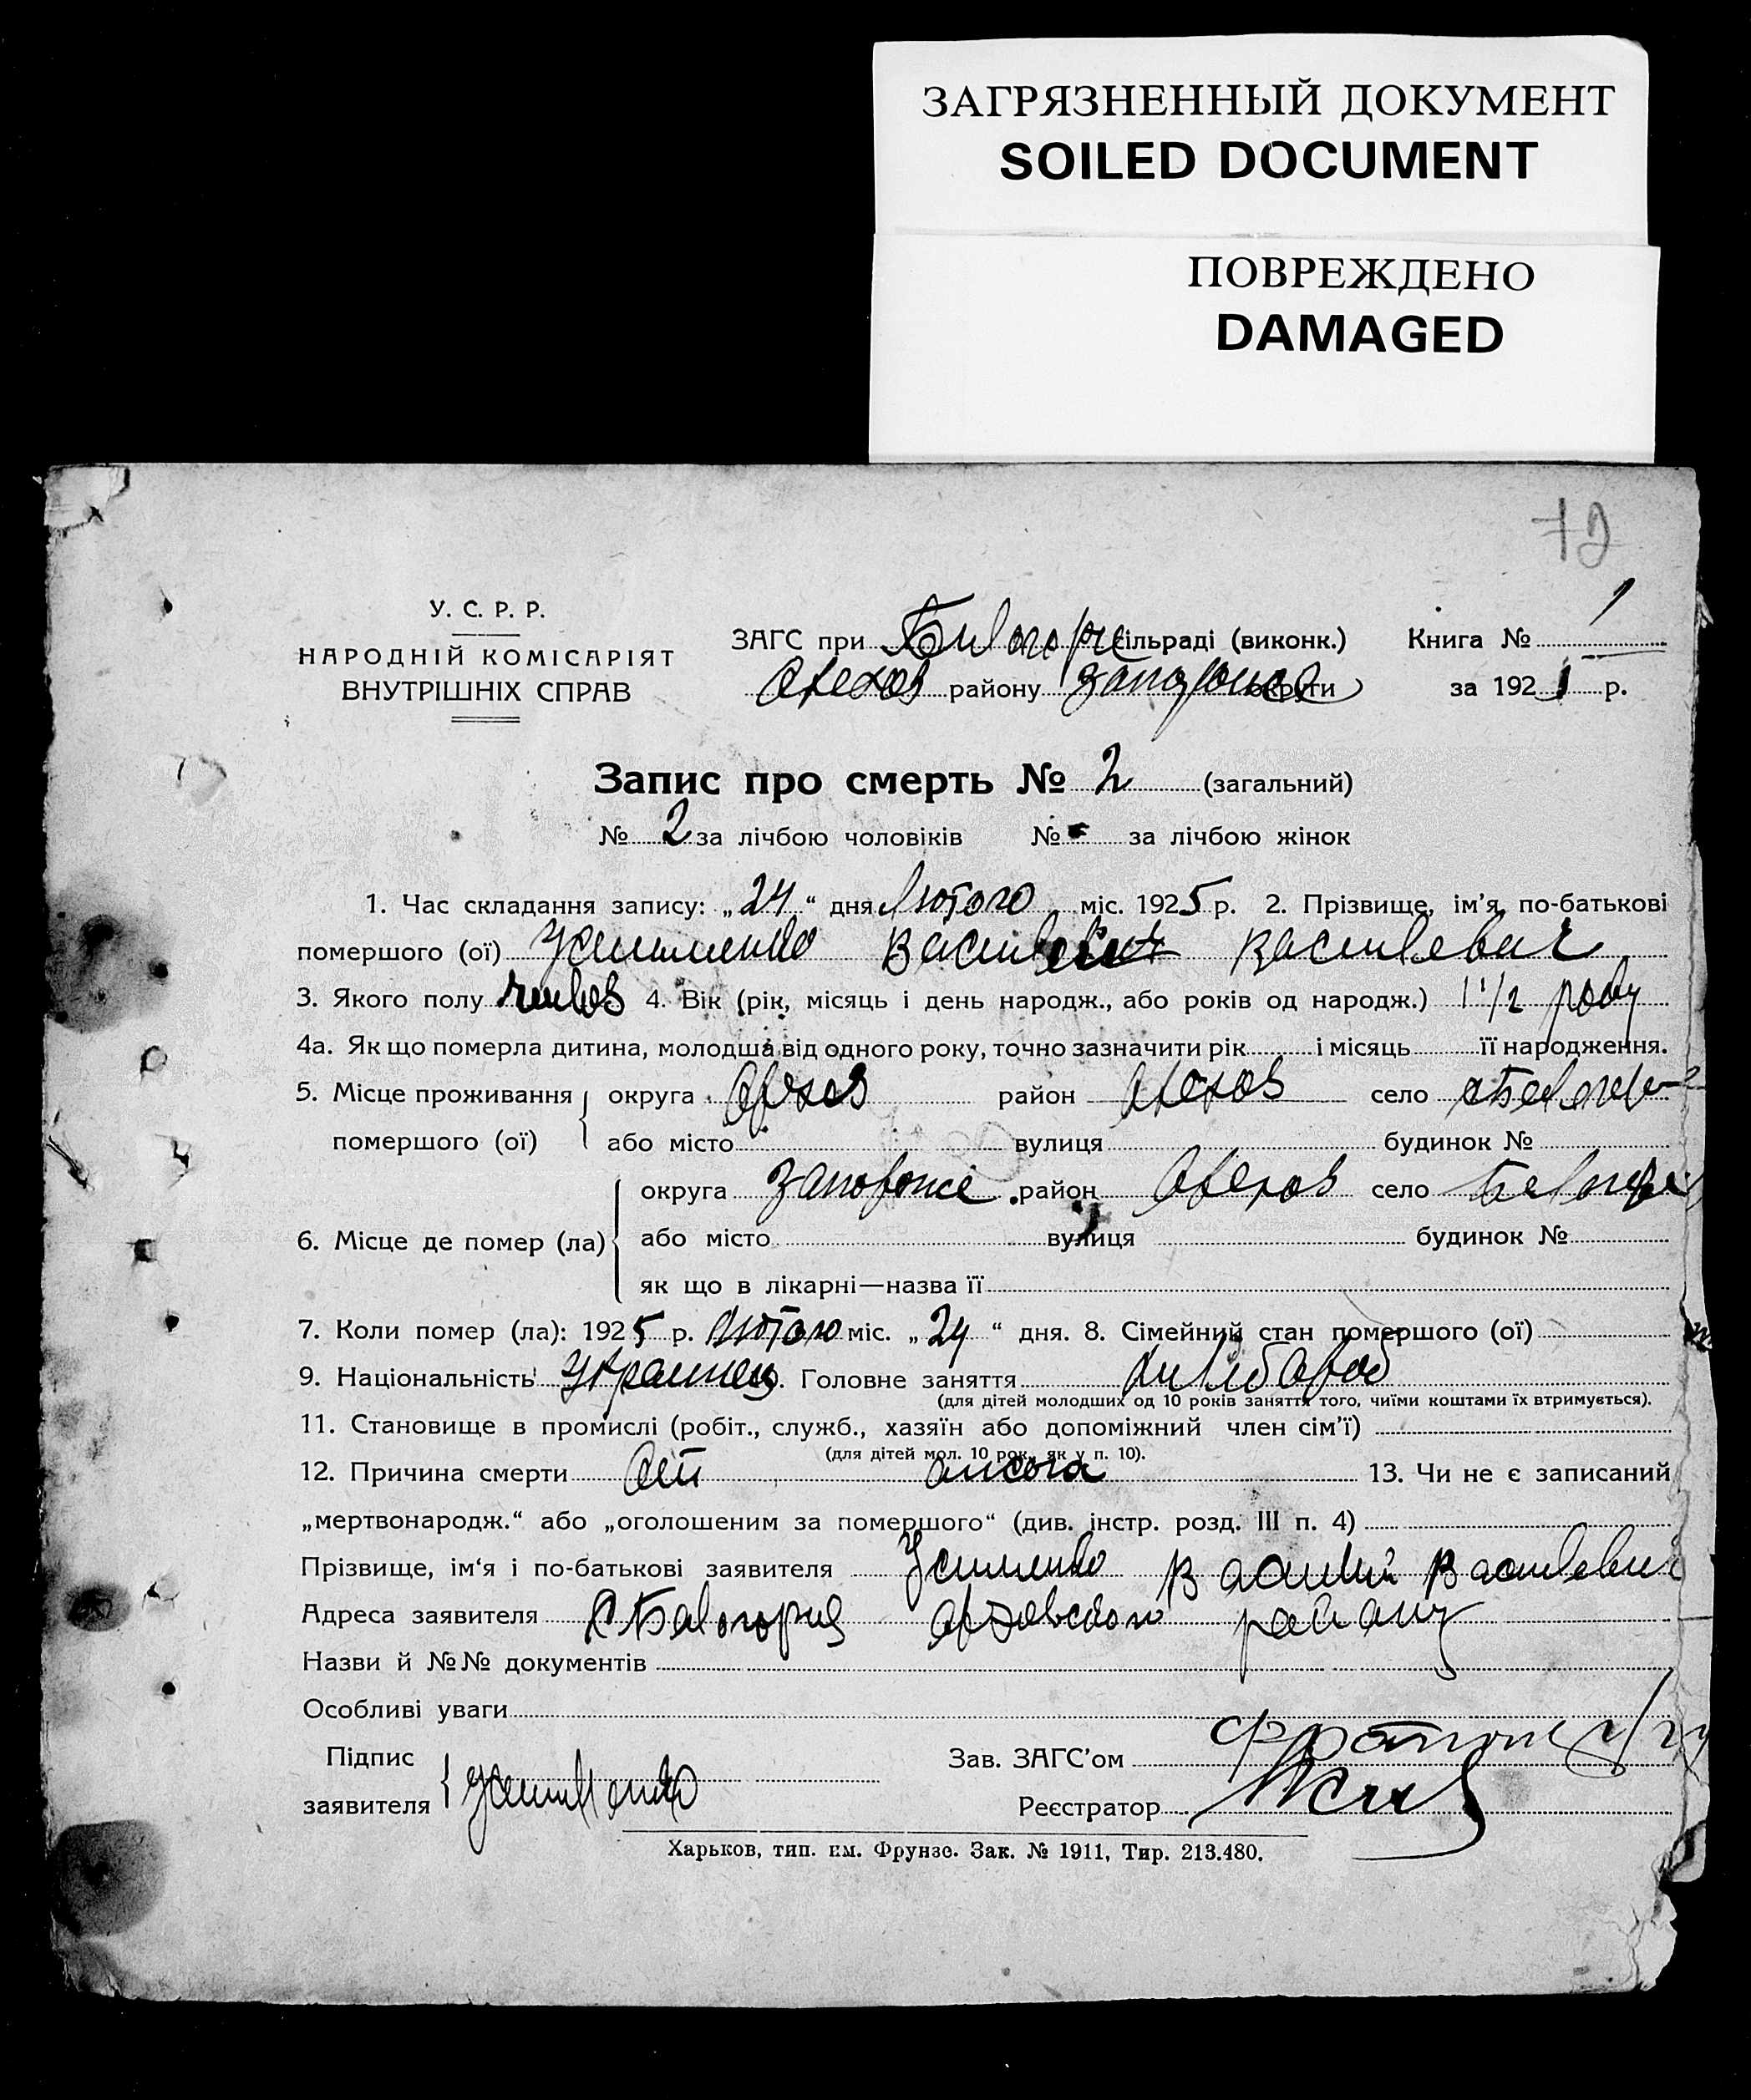 ЗАГРЯЗНЕННЫЙ ДОКУМЕНТ
SOILED DOCUMENT
ПОВРЕЖДЕНО
DAMAGED
72
У. С. Р. Р.
НАРОДНІЙ КОМІСАРІЯТ
ВНУТРІШНІХ СПРАВ
ЗАГС при сільраді (виконк.) Книга № 1
району округи за 192 р.
Запис про смерть № 2 (загальний)
№ 2 за лічбою чоловіків № - за лічбою жінок
1. Час складання запису: „24“ дня лютого міс. 1925 р. 2. Прізвище, ім'я, по-батькові
помершого (ої) Василевич
3. Якого полу 4. Вік (рік, місяць і день народж., або років од народж.) 1 1/2 року
4а. Як що померла дитина, молодша від одного року, точно зазначити рік і місяць її народження.
5. Місце проживання округа Орехов район Орехов село
помершого (ої) або місто вулиця будинок №
округа Запорожс район Орехов село
6. Місце де помер (ла) або місто вулиця будинок №
як що в лікарні—назва її
7. Коли помер (ла): 1925 р. лютого міс. „24“ дня. 8. Сімейний стан помершого (ої)
9. Національність Украинец. Головне заняття Хлібороб
(для дітей молодших од 10 років заняття того, чиїми коштами їх втримується).
11. Становище в промислі (робіт., служб., хазяїн або допоміжний член сім'ї)
(для дітей мол. 10 рок., як у п. 10).
12. Причина смерти От 13. Чи не є записаний
„мертвонародж.“ або „оголошеним за помершого“ (див. інстр. розд. III п. 4)
Прізвище, ім'я і по-батькові заявителя Василий Василевич
Адреса заявителя району
Назви й №№ документів
Особливі уваги
Підпис
заявителя
Зав. ЗАГС'ом
Реєстратор
Харьков, тип. им. Фрунзе. Зак. № 1911, Тир. 213.480.